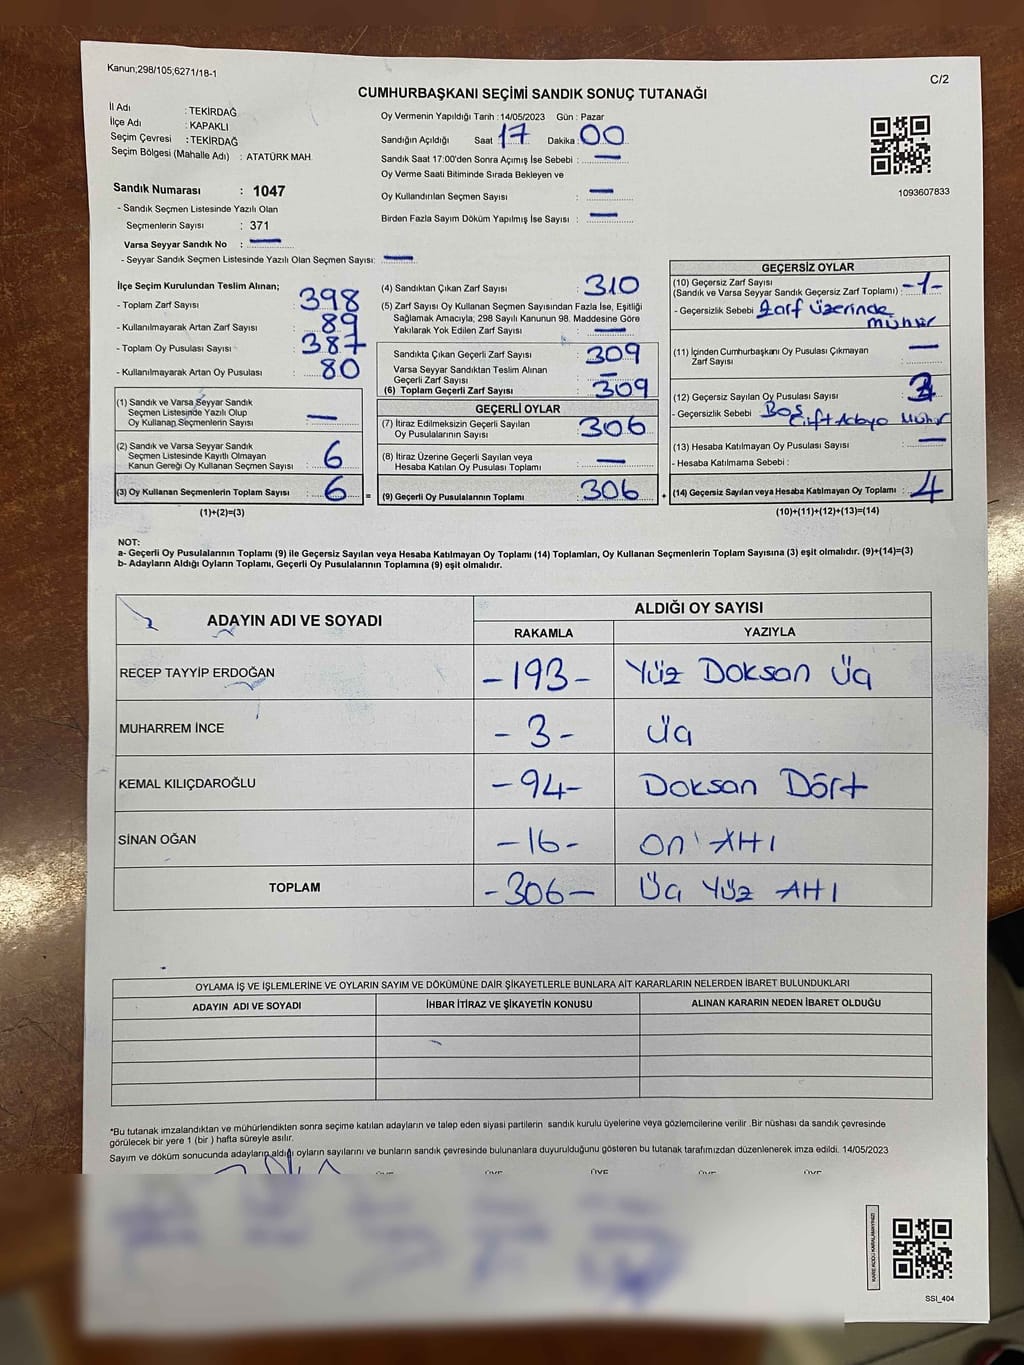 Kanun,298/105,6271/18-1
C/2
CUMHURBAŞKANI SEÇİMİ SANDIK SONUÇ TUTANAĞI
İl Adı : TEKİRDAĞ
İlçe Adı : KAPAKLI
Seçim Çevresi : TEKİRDAĞ
Seçim Bölgesi (Mahalle Adı) : ATATÜRK MAH.
Sandık Numarası : 1047
- Sandık Seçmen Listesinde Yazılı Olan
Seçmenlerin Sayısı : 371
Varsa Seyyar Sandık No : —
- Seyyar Sandık Seçmen Listesinde Yazılı Olan Seçmen Sayısı: —
Oy Vermenin Yapıldığı Tarih : 14/05/2023 Gün : Pazar
Sandığın Açıldığı Saat 17 Dakika : 00
Sandık Saat 17:00'den Sonra Açımış İse Sebebi : —
Oy Verme Saati Bitiminde Sırada Bekleyen ve
Oy Kullandırılan Seçmen Sayısı : —
Birden Fazla Sayım Döküm Yapılmış İse Sayısı : —
1093607833
İlçe Seçim Kurulundan Teslim Alınan;
- Toplam Zarf Sayısı : 398
- Kullanılmayarak Artan Zarf Sayısı : 89
- Toplam Oy Pusulası Sayısı : 387
- Kullanılmayarak Artan Oy Pusulası : 80
(1) Sandık ve Varsa Seyyar Sandık
Seçmen Listesinde Yazılı Olup
Oy Kullanan Seçmenlerin Sayısı : —
(2) Sandık ve Varsa Seyyar Sandık
Seçmen Listesinde Kayıtlı Olmayan
Kanun Gereği Oy Kullanan Seçmen Sayısı : 6
(3) Oy Kullanan Seçmenlerin Toplam Sayısı : 6
(1)+(2)=(3)
=
(4) Sandıktan Çıkan Zarf Sayısı : 310
(5) Zarf Sayısı Oy Kullanan Seçmen Sayısından Fazla İse, Eşitliği
Sağlamak Amacıyla; 298 Sayılı Kanunun 98. Maddesine Göre
Yakılarak Yok Edilen Zarf Sayısı : —
Sandıkta Çıkan Geçerli Zarf Sayısı : 309
Varsa Seyyar Sandıktan Teslim Alınan
Geçerli Zarf Sayısı : —
(6) Toplam Geçerli Zarf Sayısı : 309
GEÇERLİ OYLAR
(7) İtiraz Edilmeksizin Geçerli Sayılan
Oy Pusulalarının Sayısı : 306
(8) İtiraz Üzerine Geçerli Sayılan veya
Hesaba Katılan Oy Pusulası Toplamı : —
(9) Geçerli Oy Pusulalarının Toplamı : 306
+
GEÇERSİZ OYLAR
(10) Geçersiz Zarf Sayısı
(Sandık ve Varsa Seyyar Sandık Geçersiz Zarf Toplamı) : -1-
- Geçersizlik Sebebi Zarf üzerinde
mühür
(11) İçinden Cumhurbaşkanı Oy Pusulası Çıkmayan
Zarf Sayısı : —
(12) Geçersiz Sayılan Oy Pusulası Sayısı :
- Geçersizlik Sebebi Boş
Çift Adaya Mühür
(13) Hesaba Katılmayan Oy Pusulası Sayısı : —
- Hesaba Katılmama Sebebi :
(14) Geçersiz Sayılan veya Hesaba Katılmayan Oy Toplamı : 4
(10)+(11)+(12)+(13)=(14)
NOT:
a- Geçerli Oy Pusulalarının Toplamı (9) ile Geçersiz Sayılan veya Hesaba Katılmayan Oy Toplamı (14) Toplamları, Oy Kullanan Seçmenlerin Toplam Sayısına (3) eşit olmalıdır. (9)+(14)=(3)
b- Adayların Aldığı Oyların Toplamı, Geçerli Oy Pusulalarının Toplamına (9) eşit olmalıdır.
ADAYIN ADI VE SOYADI
ALDIĞI OY SAYISI
RAKAMLA YAZIYLA
RECEP TAYYİP ERDOĞAN -193- Yüz Doksan Üç
MUHARREM İNCE -3- Üç
KEMAL KILIÇDAROĞLU -94- Doksan Dört
SİNAN OĞAN -16- on Altı
TOPLAM -306- Üç Yüz Altı
OYLAMA İŞ VE İŞLEMLERİNE VE OYLARIN SAYIM VE DÖKÜMÜNE DAİR ŞİKAYETLERLE BUNLARA AİT KARARLARIN NELERDEN İBARET BULUNDUKLARI
ADAYIN ADI VE SOYADI İHBAR İTİRAZ VE ŞİKAYETİN KONUSU ALINAN KARARIN NEDEN İBARET OLDUĞU
*Bu tutanak imzalandıktan ve mühürlendikten sonra seçime katılan adayların ve talep eden siyasi partilerin sandık kurulu üyelerine veya gözlemcilerine verilir .Bir nüshası da sandık çevresinde
görülecek bir yere 1 (bir ) hafta süreyle asılır.
Sayım ve döküm sonucunda adayların aldığı oyların sayılarını ve bunların sandık çevresinde bulunanlara duyurulduğunu gösteren bu tutanak tarafımızdan düzenlenerek imza edildi. 14/05/2023
ÜYE ÜYE ÜYE ÜYE
KARE KODU KARALAMAYINIZ!
SSI_404